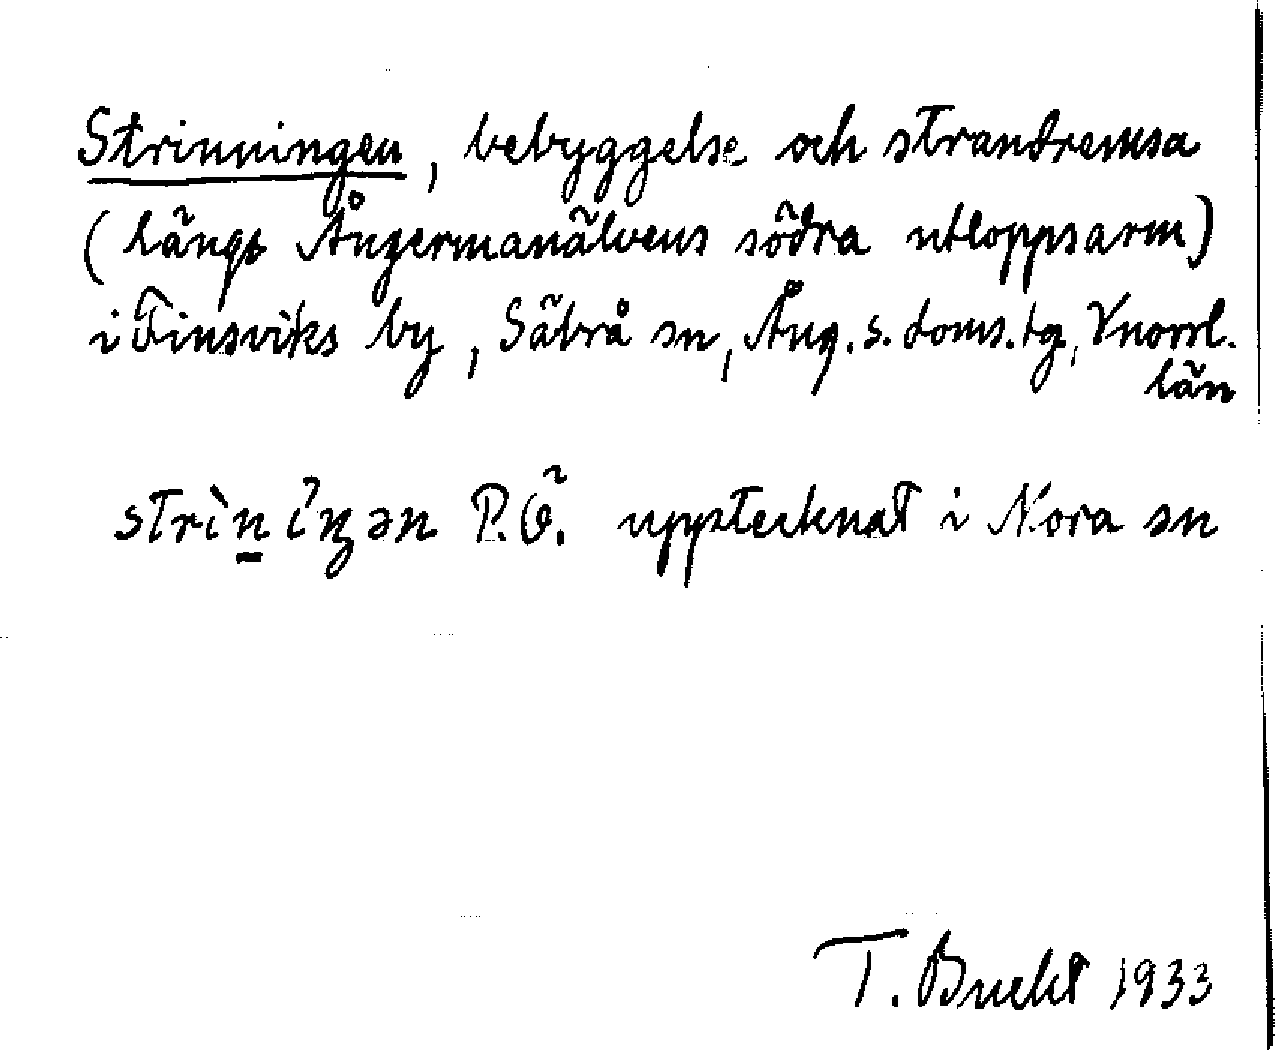 Strinningen, bebyggelse och strandremsa
(längs Ångermanälvens södra utloppsarm)
i Finsviks by, Säbrå sn, Ång. s. doms. tg, Vnorrl.
län
strìn̲ íŋən P.Ö. upptecknat i Nora sn
T. Bucht 1933